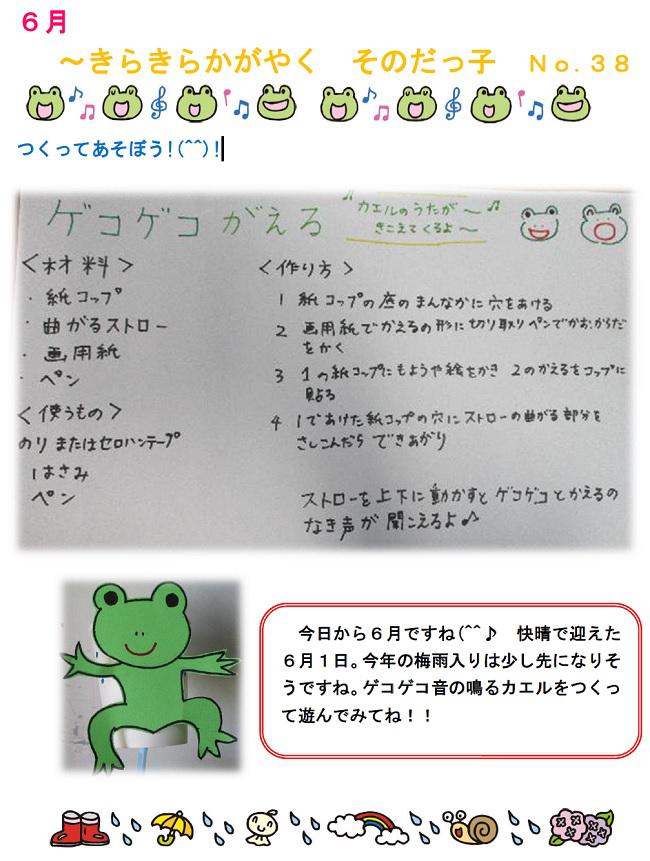 6月
~きらきらかがやく　そのだっ子　No.38
つくってあそぼう!(^^)!
ゲコゲコ がえる
カエルのうたが～
きこえてくるよ～
<材料>
・紙コップ
・曲がるストロー
・画用紙
・ペン
<使うもの>
のり またはセロハンテープ
はさみ
ペン
<作り方>
1 紙コップの底のまんなかに穴をあける
2 画用紙でかえるの形に切り取りペンでかお、からだ
をかく
3 1の紙コップにもようや絵をかき 2のかえるをコップに
貼る
4 1であけた紙コップの穴にストローの曲がる部分を
さしこんだら できあがり
ストローを上下に動かすと ゲコゲコとかえるの
なき声が 聞こえるよ♪
今日から6月ですね(^^♪　快晴で迎えた
6月1日。今年の梅雨入りは少し先になりそ
うですね。ゲコゲコ音の鳴るカエルをつくっ
て遊んでみてね！！